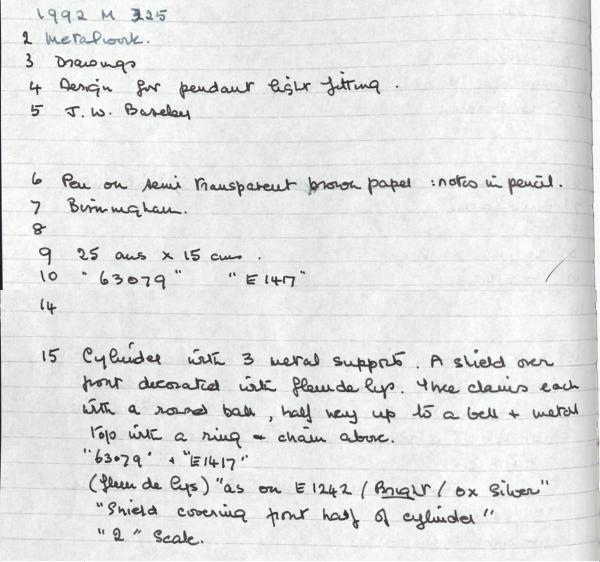 1992 M 325
2 Metalwork.
3 Drawings
4 Design for pendant light fitting.
5 J. W. Baseley
6 Pen on semi transparent brown paper : notes in pencil.
7 Birmingham.
8
9 25 cms x 15 cms.
10 "63079" "E1417"
14
15 Cylinder with 3 metal supports. A shield over
front decorated with fleur de lys. Three chains each
with a round ball, half way up to a bell + metal
top with a ring + chain above.
"63079" + "E1417"
(fleur de lys) "as on E1242 / Bright / ox Silver"
"Shield covering front half of cylinder"
"2" Scale.